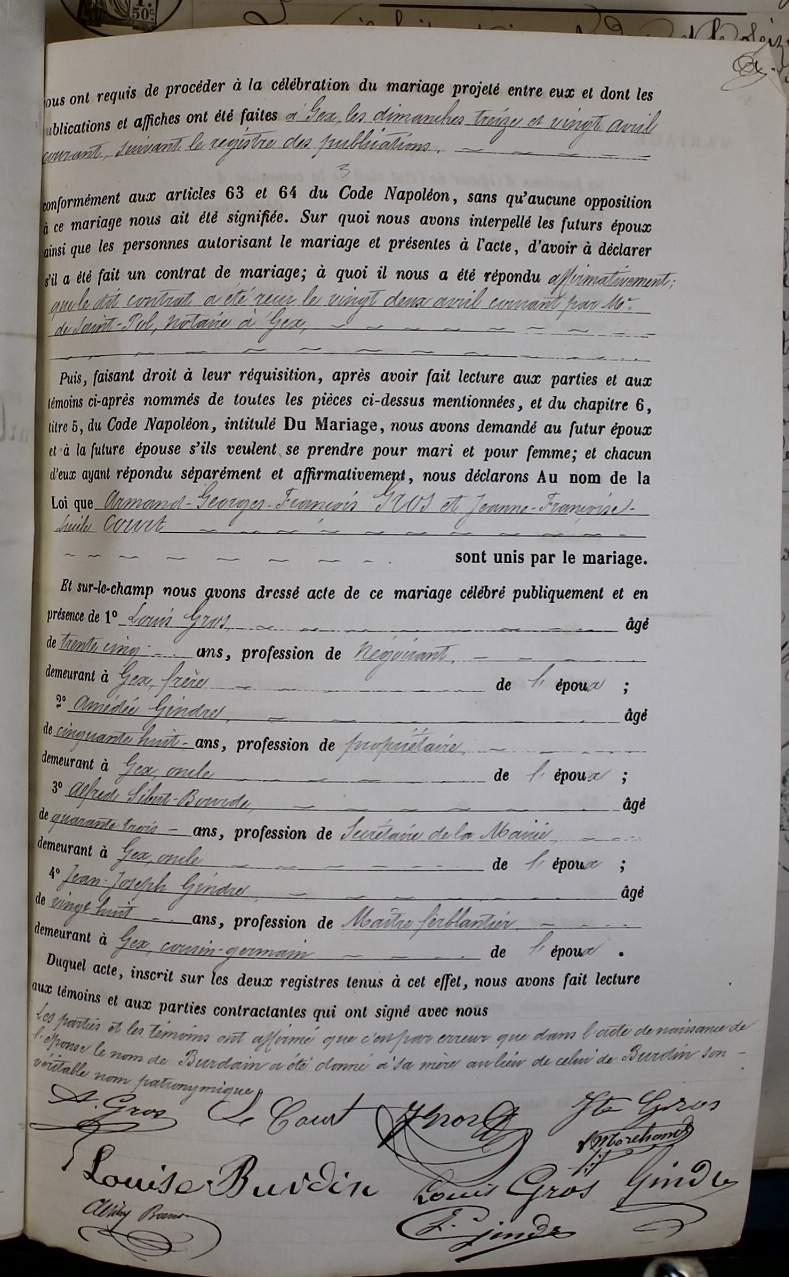 50c
ous ont requis de procéder à la célébration du mariage projeté entre eux et dont les
ublications et affiches ont été faites à Gex, les dimanches treize et vingt avril
courant, suivant le registre des publications.
3
conformément aux articles 63 et 64 du Code Napoléon, sans qu'aucune opposition
à ce mariage nous ait été signifiée. Sur quoi nous avons interpellé les futurs époux
ainsi que les personnes autorisant le mariage et présentes à l'acte, d'avoir à déclarer
s'il a été fait un contrat de mariage; à quoi il nous a été répondu affirmativement;
que le dit contrat a été reçu le vingt deux avril courant par Mr.
de Saint-Pol, notaire à Gex,
Puis, faisant droit à leur réquisition, après avoir fait lecture aux parties et aux
témoins ci-après nommés de toutes les pièces ci-dessus mentionnées, et du chapitre 6,
titre 5, du Code Napoléon, intitulé Du Mariage, nous avons demandé au futur époux
et à la future épouse s'ils veulent se prendre pour mari et pour femme; et chacun
d'eux ayant répondu séparément et affirmativement, nous déclarons Au nom de la
Loi que Armand-Georges-François Gros et Jeanne-Françoise-
Court
sont unis par le mariage.
Et sur-le-champ nous avons dressé acte de ce mariage célébré publiquement et en
présence de 1° Louis Gros âgé
de trente cinq ans, profession de Négociant,
demeurant à Gex, frère de l' époux ;
2° Amédée Gindre, âgé
de cinquante huit - ans, profession de propriétaire,
demeurant à Gex, oncle de l' époux ;
3° Alfred âgé
de quarante trois - ans, profession de Secrétaire de la Mairie
demeurant à Gex, oncle de l' époux ;
4° Jean-Joseph Gindre âgé
de vingt huit ans, profession de Maître ferblantier,
demeurant à Gex, cousin-germain de l' époux .
Duquel acte, inscrit sur les deux registres tenus à cet effet, nous avons fait lecture
aux témoins et aux parties contractantes qui ont signé avec nous
Les parties et les témoins ont affirmé que c'est par erreur que dans l'acte de naissance de
l'épouse le nom de Burdain a été donné à sa mère au lieu de celui de Burdin son -
véritable nom patronymique.
A. Gros L Court Gros Jte Gros
Marchand
Louise Burdin Louis Gros Gindre
J. Gindre